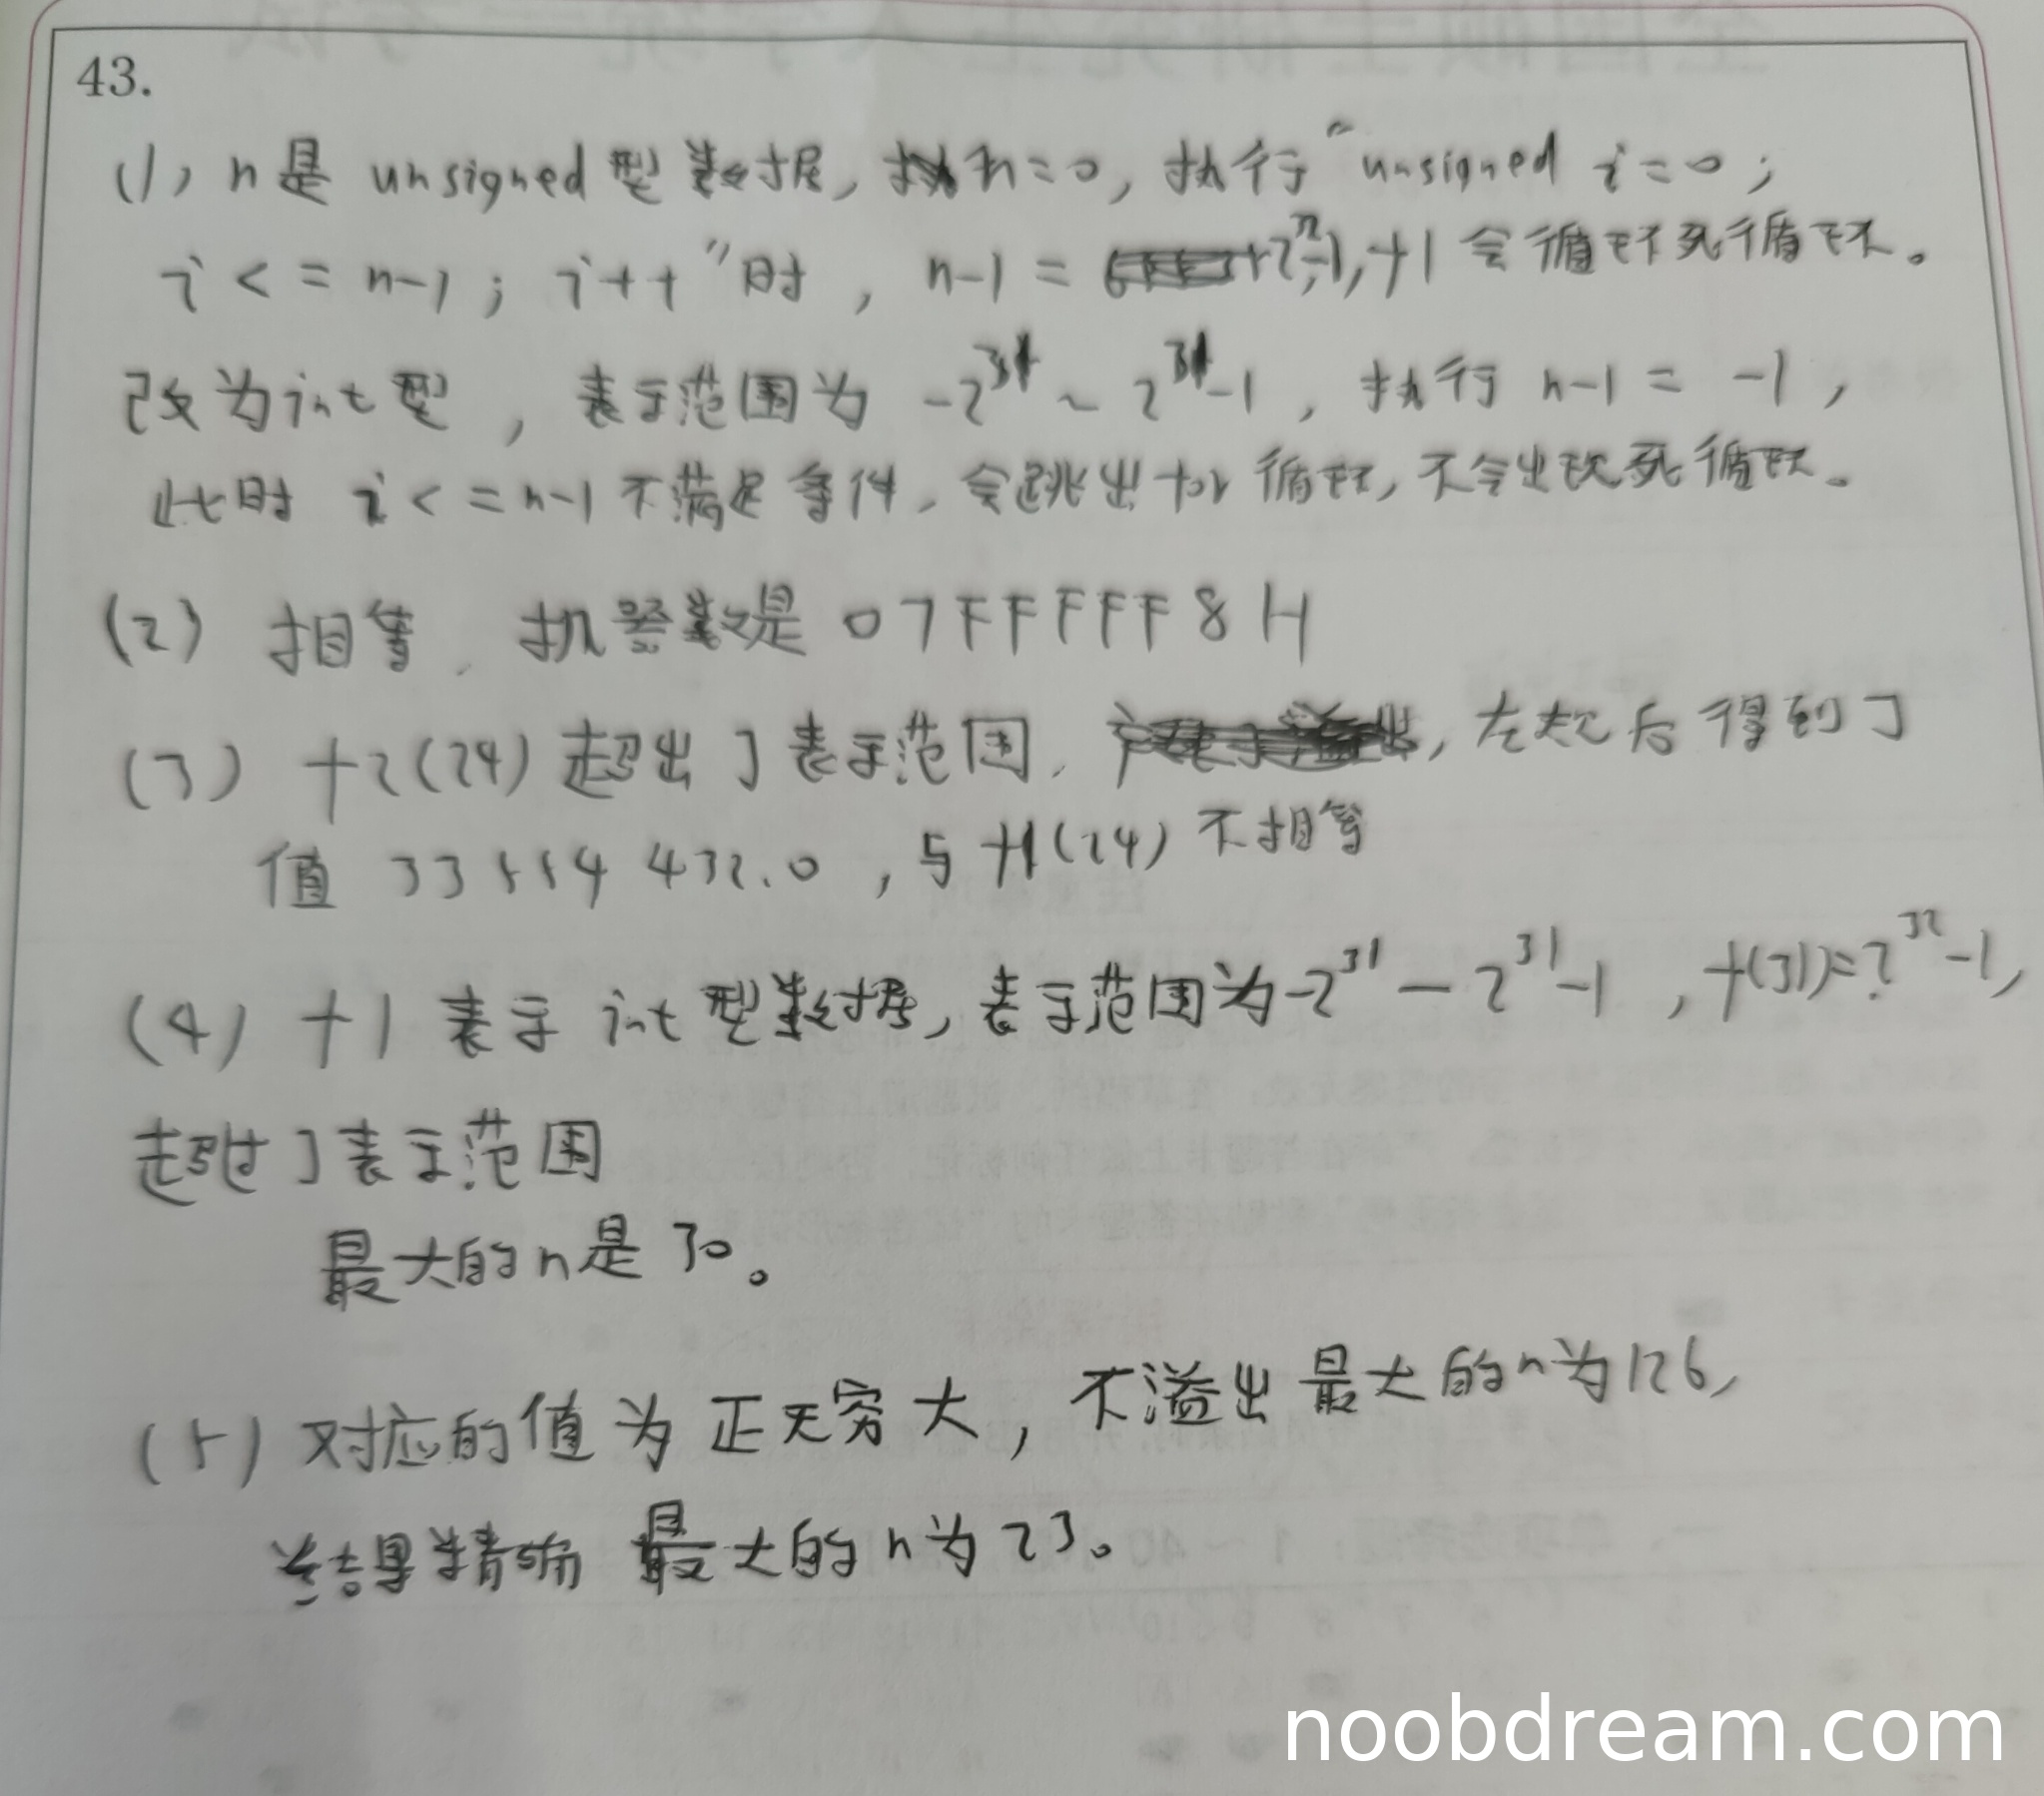 43.
(1), n是 unsigned 型数据, n=0, 执行"unsigned i=0;
i<=n-1; i++"时, n-1= 2^32-1, f1会循环死循环。
改为int型, 表示范围为 -2^31 ~ 2^31-1, 执行 n-1 = -1,
此时 i<=n-1不满足条件, 会跳出for循环, 不会出现死循环。
(2) 相等, 机器数是 07FFFFF8H
(3) f2(24)超出了表示范围, 左规后得到了
值 33554432.0, 与f1(24)不相等
(4) f1 表示 int 型数据, 表示范围为-2^31 — 2^31-1, f(31)=2^32-1,
超过了表示范围
最大的n是30。
(5) 对应的值为正无穷大, 不溢出最大的n为126,
结果精确 最大的n为23。
noobdream.com